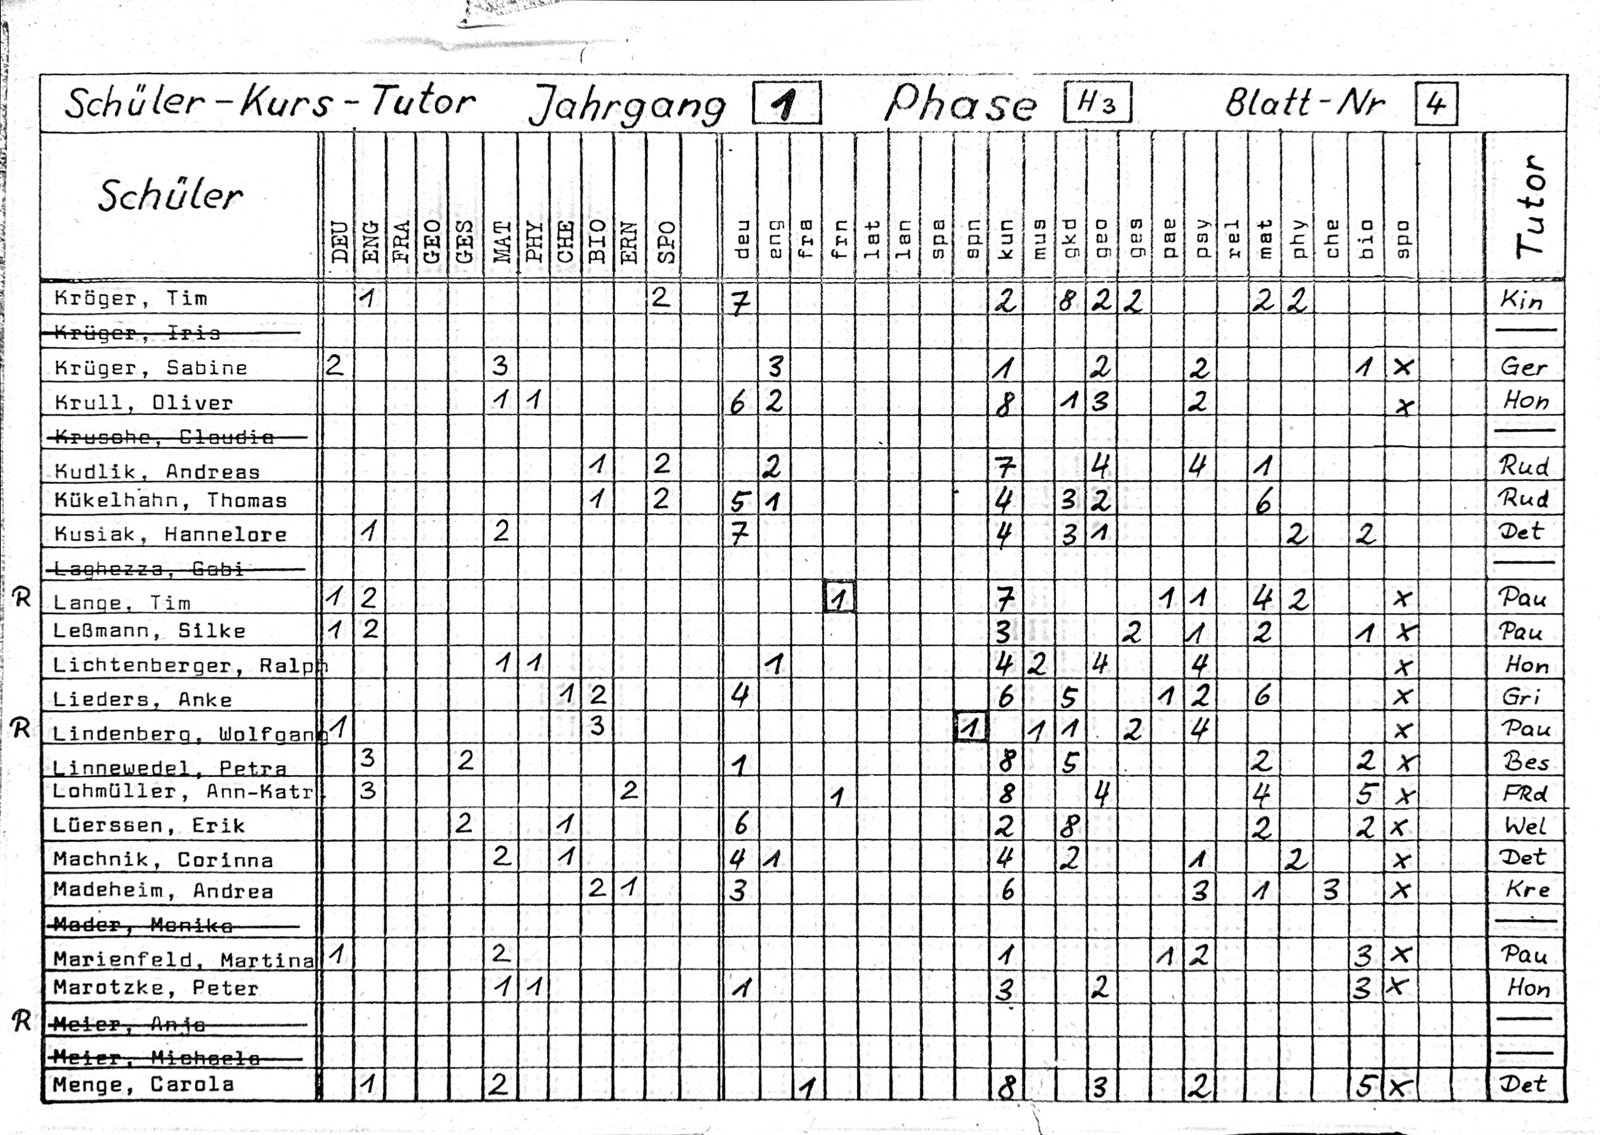 Schüler-Kurs-Tutor Jahrgang 1 Phase H3 Blatt-Nr 4
Schüler DEU ENG FRA GEO GES MAT PHY CHE BIO ERN SPO deu eng fra frn lat lan spa spn kun mus gkd geo ges pae psy rel mat phy che bio spo Tutor
Kröger, Tim 1 2 7 2 8 2 2 2 2 Kin
Krüger, Iris
Krüger, Sabine 2 3 3 1 2 2 1 x Ger
Krull, Oliver 1 1 6 2 8 1 3 2 x Hon
Krusche, Claudia
Kudlik, Andreas 1 2 2 7 4 4 1 Rud
Kükelhahn, Thomas 1 2 5 1 4 3 2 6 Rud
Kusiak, Hannelore 1 2 7 4 3 1 2 2 Det
Laghezza, Gabi
R Lange, Tim 1 2 1 7 1 1 4 2 x Pau
Leßmann, Silke 1 2 3 2 1 2 1 x Pau
Lichtenberger, Ralph 1 1 1 4 2 4 4 x Hon
Lieders, Anke 1 2 4 6 5 1 2 6 x Gri
R Lindenberg, Wolfgang 1 3 1 1 1 2 4 x Pau
Linnewedel, Petra 3 2 1 8 5 2 2 x Bes
Lohmüller, Ann-Katr 3 2 1 8 4 4 5 x FRd
Lüerssen, Erik 2 1 6 2 8 2 2 x Wel
Machnik, Corinna 2 1 4 1 4 2 1 2 x Det
Madeheim, Andrea 2 1 3 6 3 1 3 x Kre
Mader, Monika
Marienfeld, Martina 1 2 1 1 2 3 x Pau
Marotzke, Peter 1 1 1 3 2 3 x Hon
R Meier, Anja
Meier, Michaela
Menge, Carola 1 2 1 8 3 2 5 x Det